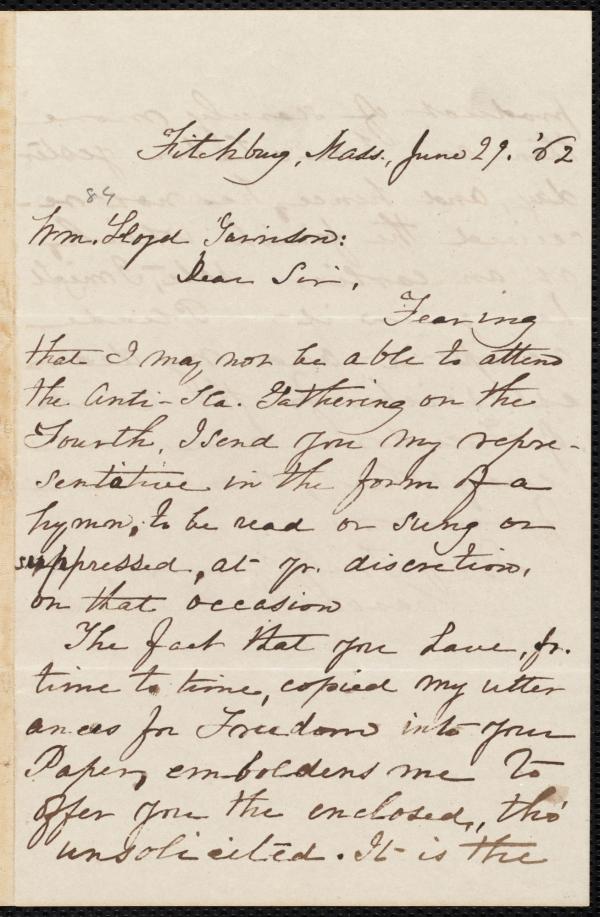 Fitchburg, Mass., June 29. '62
84
Wm. Lloyd Garrison:
Dear Sir,
Fearing
that I may not be able to attend
the Anti-Sla. Gathering on the
Fourth, I send you my repre-
sentitive in the form of a
hymn, to be read or sung or
suppressed, at yr. discretion,
on that occasion
The fact that you have, fr.
time to time, copied my utter
ances for Freedom into your
Paper, emboldens me to
offer you the enclosed, tho'
unsolicited. It is the